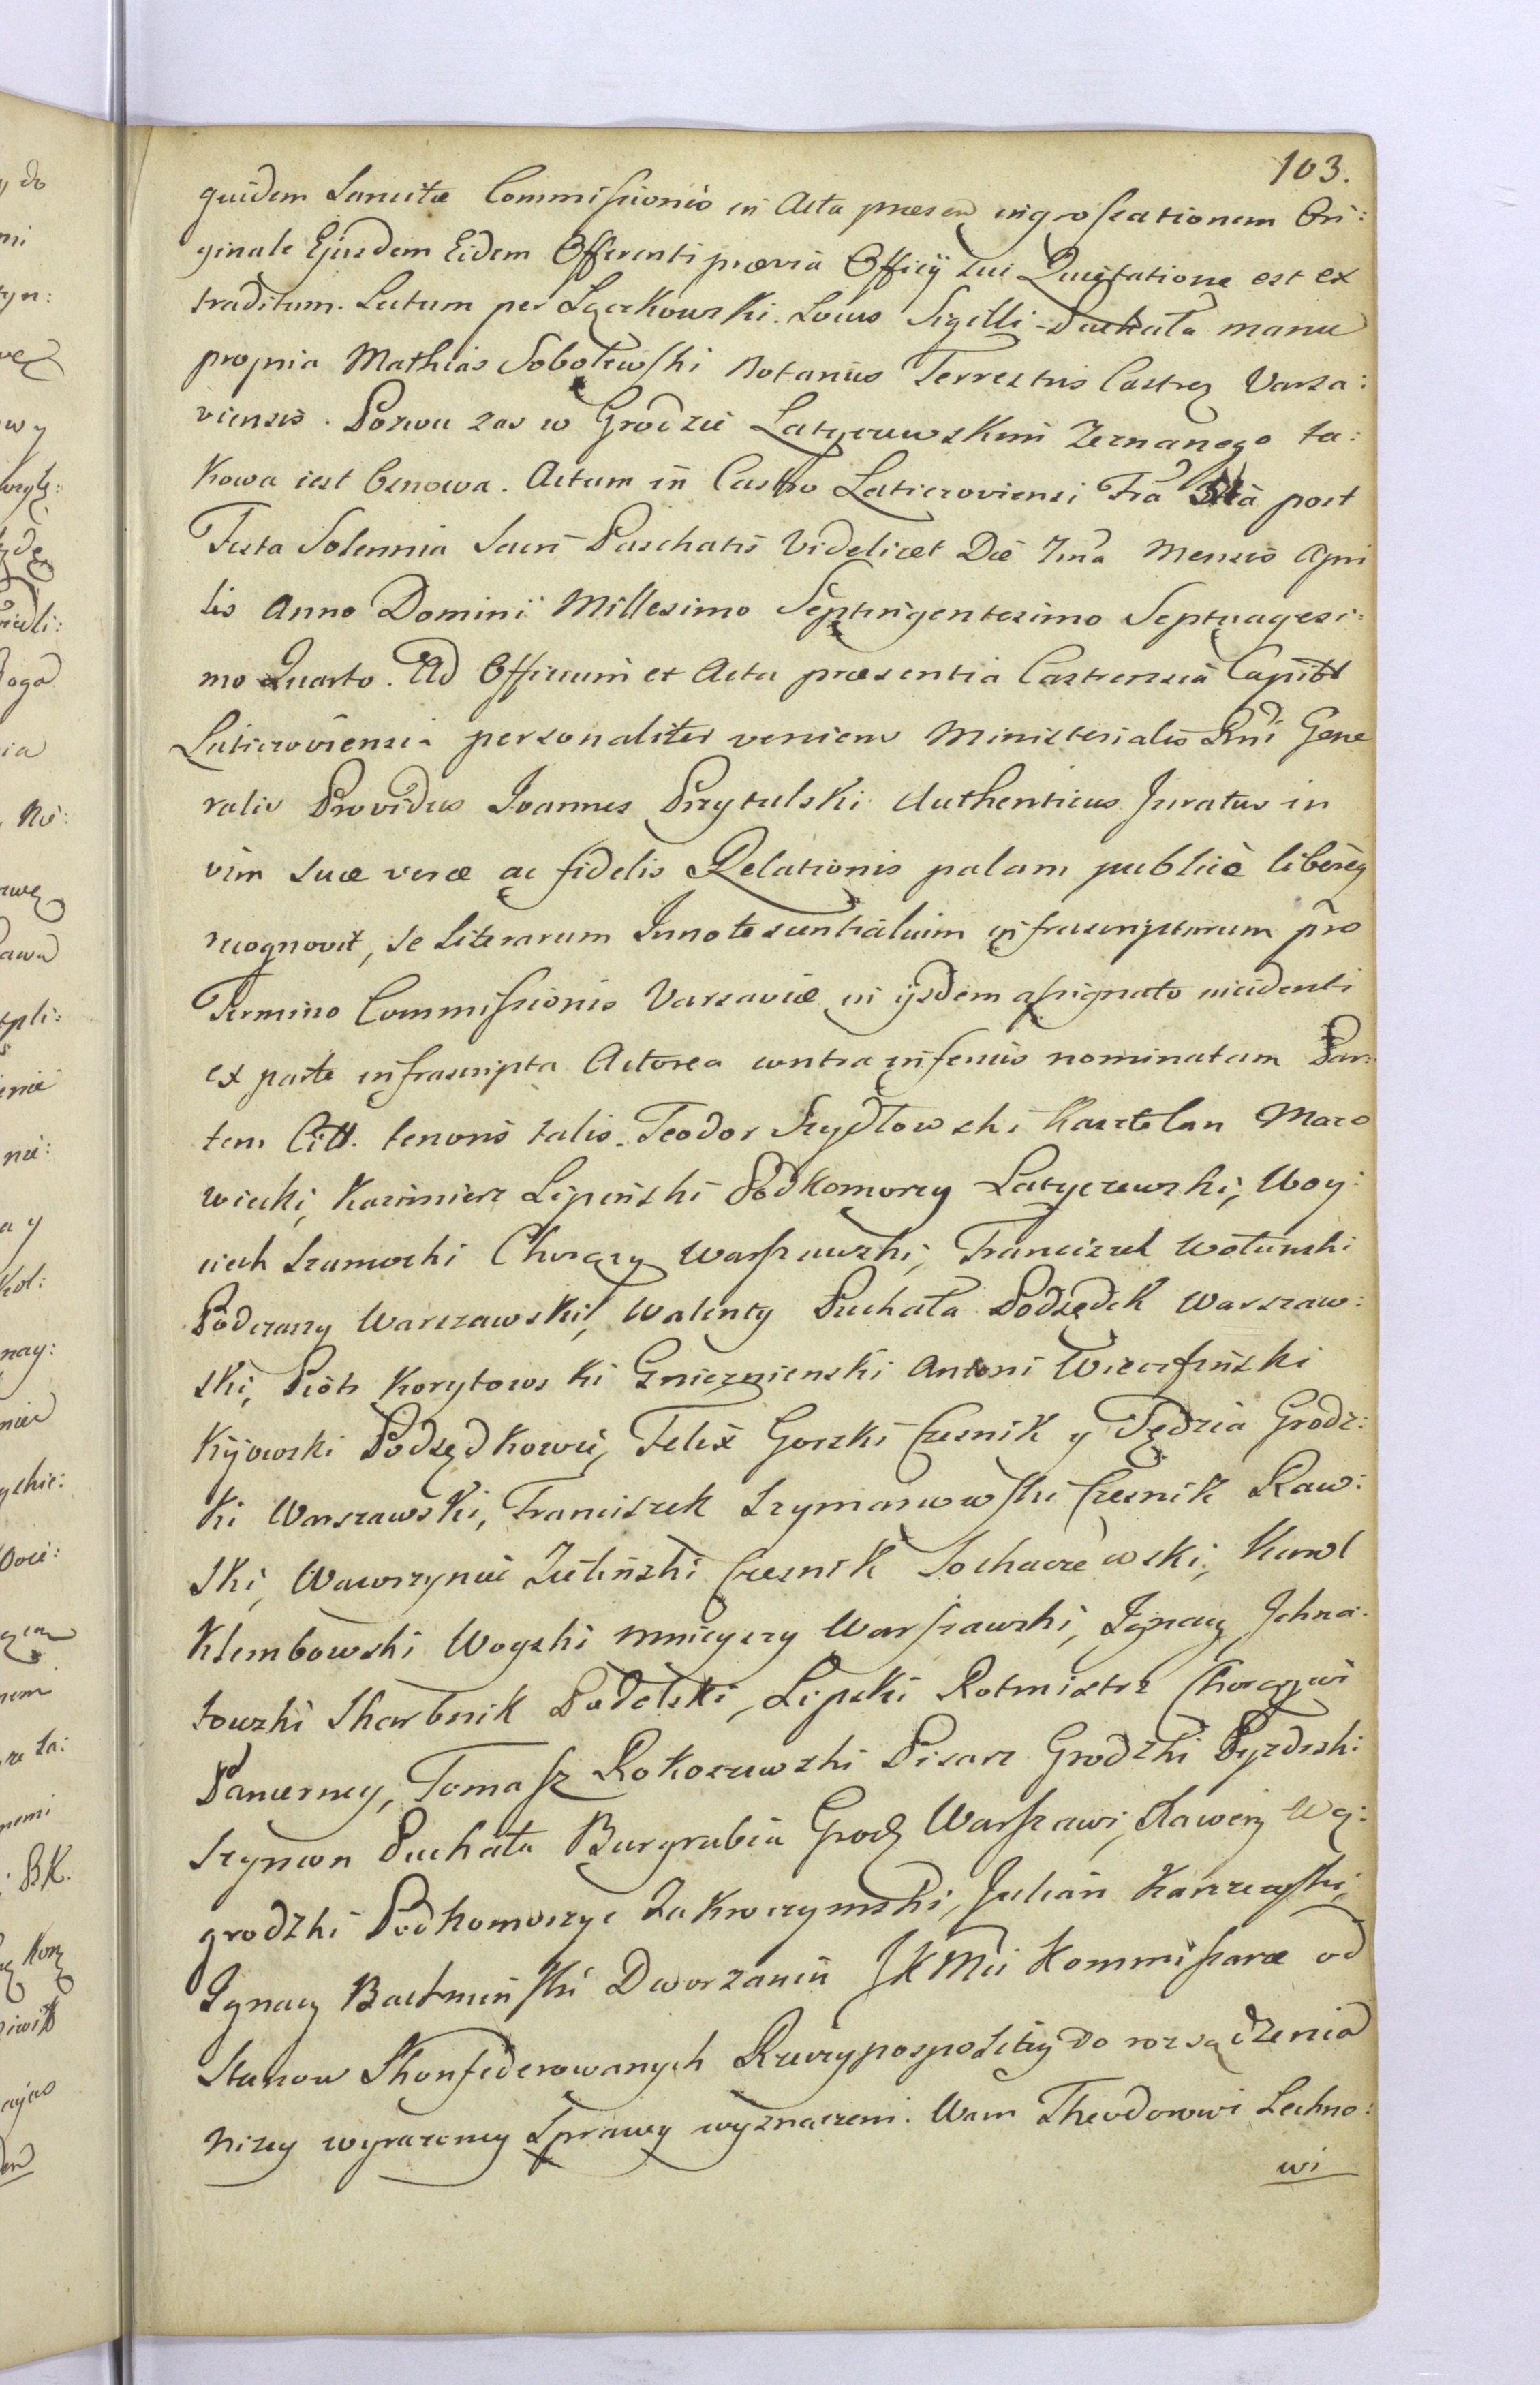 103.
quidem Sancitæ Commissionis in Acta præsen ingrossationem Ori:
ginale Ejusdem Eidem Offerenti prævia Officij sui Quietatione est ex
traditum. Lectum per Lączkowski. Locus Sigilli Puchała manu
propria Mathias Sobolewski Notarius Terrestris Castren Varsa:
viensis. Pozwu zas w Grodzie Latyczewskim Zeznanego ta:
kowa iest Osnowa. Actum in Castro Laticzoviensi Fia 5ta post
Festa Solennia Sacri Paschatis Videlicet Die 7ma Mensis Apri
lis Anno Domini Millesimo Septingentesimo Septuagesi:
mo Quarto. Ad Officium et Acta præsentia Castrensia Capitt
Laticzoviensia personaliter veniens Ministerialis Rni Gene
ralis Providus Joannes Przytulski Authenticus Juratus in
vim suæ veræ ac fidelis Relationis palam publicè liberèq
recognovit, se Literarum Innotescentialium infrascriptarum pro
Termino Commissionis Varsaviæ in ijsdem assignato incidenti
ex parte infrascripta Actorea contra inferius nominatam Par:
tem Citt. tenoris talis. Teodor Szydłowski Kasztelan Mazo
wiecki, Kazimierz Lipiński Podkomorzy Latyczewski, Woy:
ciech Szamocki Chorąży Warszawski, Franciszek Wotunski
Podczaszy Warszawski, Walenty Puchała Podsędek Warszaw:
ski, Piotr Korytowski Gnieznienski Antoni Wierciński
Kijowski Podsędkowie, Felix Gorski Czesnik y Sędzia Grodz:
ki Warszawski, Franciszek Szymanowski Czesnik Raw:
ski, Wawrzyniec Zieliński Czesnik Sochaczewski, Karol
Klembowski Woyski mnieyszy Warszawski, Ignacy Jchna:
towski Skarbnik Podolski, Lipski Rotmistrz Chorągwi
Pancerney, Tomasz Rokoszewski Pisarz Grodzki Pyzdrski
Szymon Puchała Burgrabia Grodz Warszawi, Xawery Wy:
grodzki Podkomorzyc Zakroczymski, Julian Karczewski,
Ignacy Bachmiński Dworzanin JKMci Kommissarze od
Stanow Skonfederowanych Rzeczypospolitey do rozsądzenia
nizey wyrazoney Sprawy wyznaczeni. Wam Theodorowi Lechno:
wi